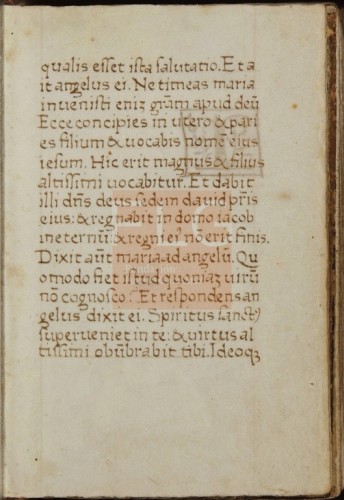 qualis esset ista salutatio. Et a
it angelus ei. Ne timeas maria
invenisti eniȝ grãm apud deũ
Ecce concipies in utero & pari
es filium & vocabis nomẽ eius
iesum. Hic erit magnus & filius
altissimi vocabitur. Et dabit
illi dñs deus sedem david pr̃is
eius: & regnabit in domo iacob
in eternũ: & regni eiꝰ nõ erit finis.
Dixit aũt maria ad angelũ. Qu
omodo fiet istud quoniaȝ virũ
nõ cognosco? Et respondens an
gelus dixit ei. Spiritus sanctꝰ
superveniet in te: & virtus al
tissimi obũbrabit tibi. Ideoqȝ